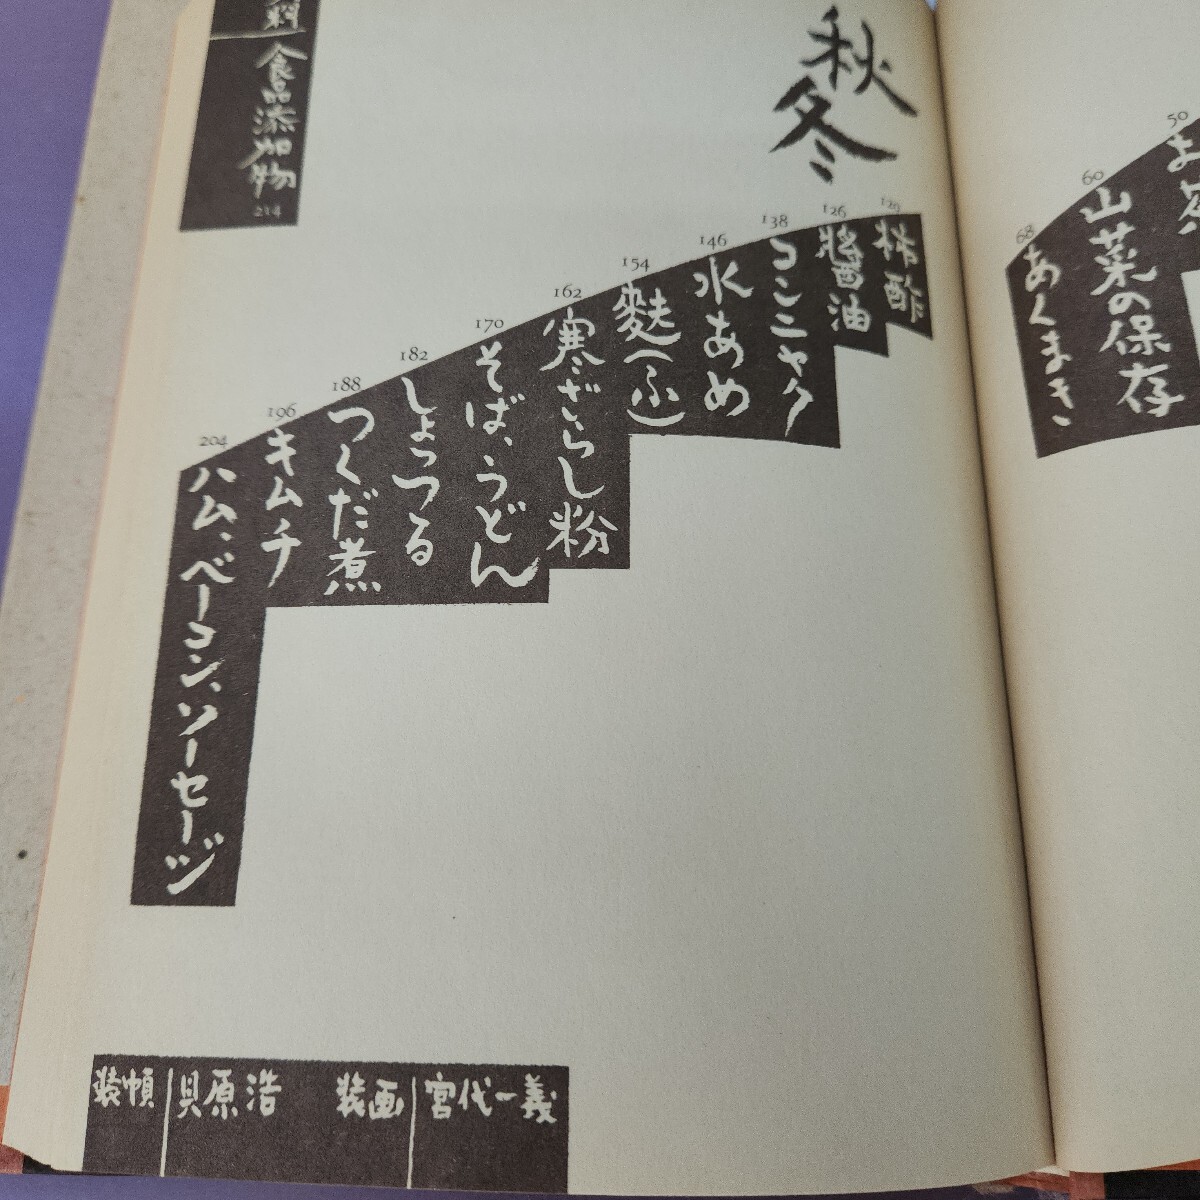 60
山菜の保存
68
あくまき
秋
冬
柿酢
126
醬油
138
コンニャク
146
水あめ
154
麩(ふ)
162
寒ざらし粉
170
そば、うどん
182
しょっつる
188
つくだ煮
196
キムチ
204
ハム、ベーコン、ソーセージ
食品添加物
214
装幀 貝原浩
装画 宮代一義